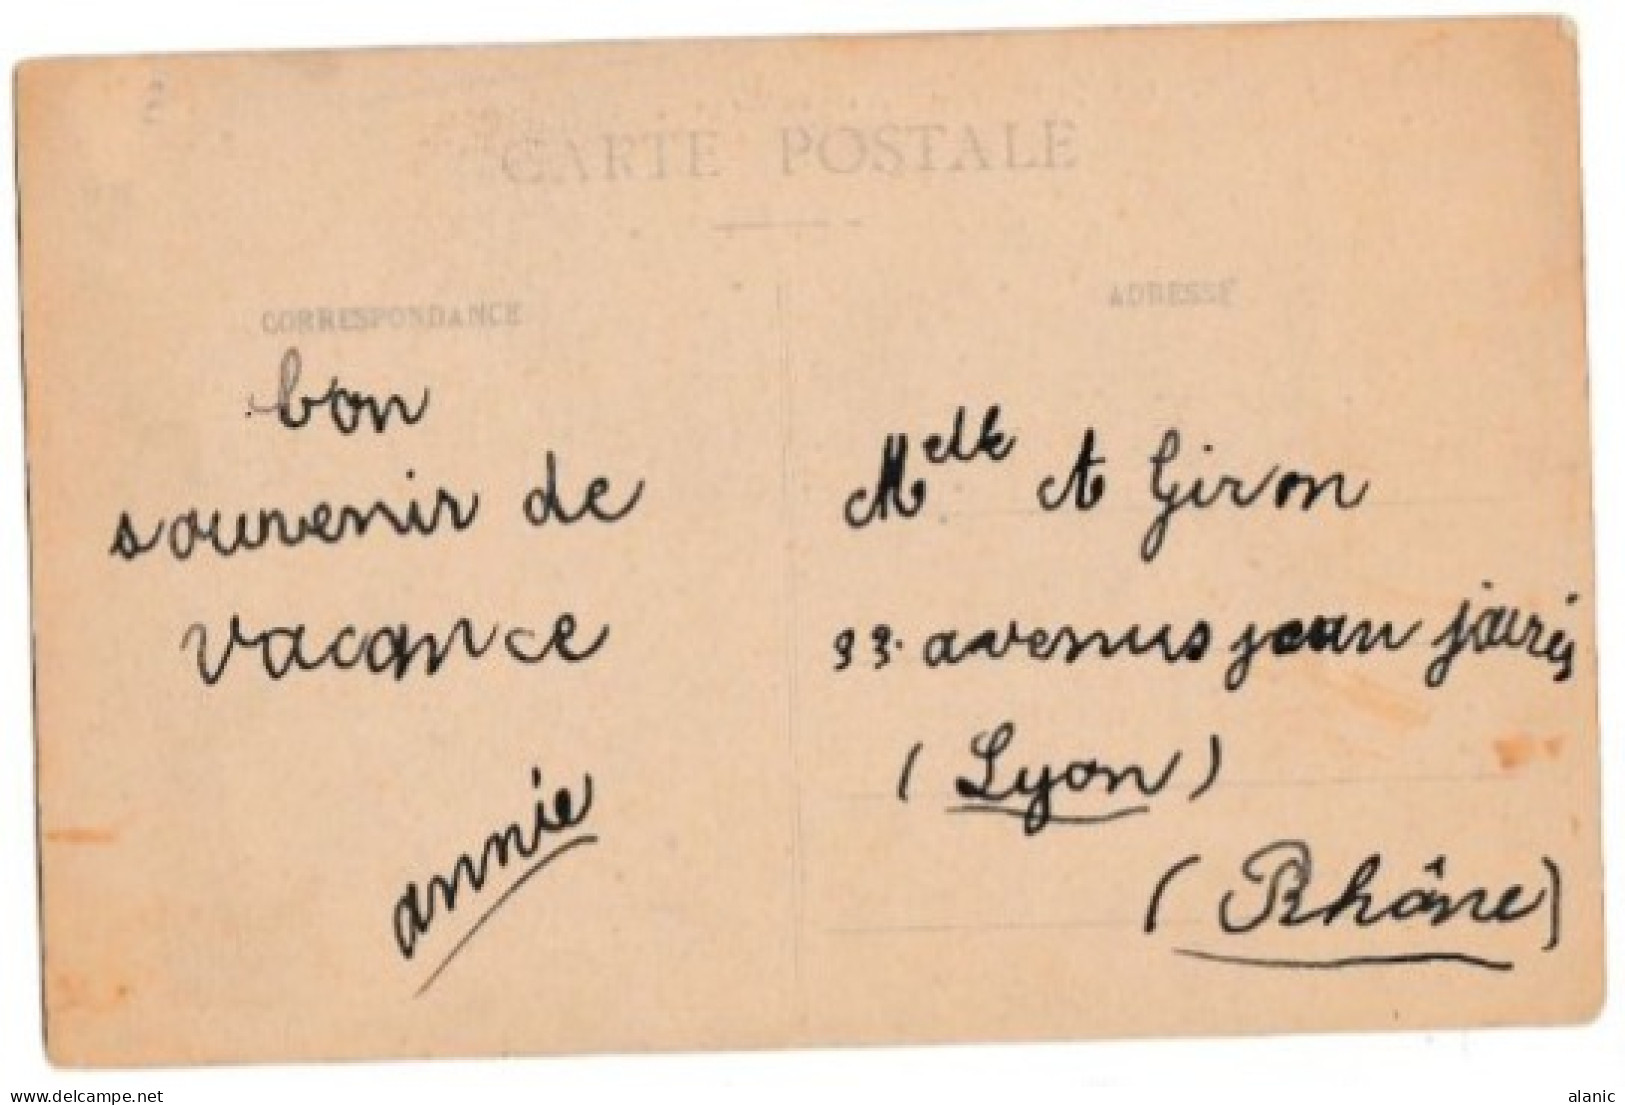 CARTE POSTALE
CORRESPONDANCE
bon
souvenir de
vacance
annie
ADRESSE
Melle A Giron
93. avenus jean jaurès
(Lyon)
(Rhône)
delcampe.net
alanic